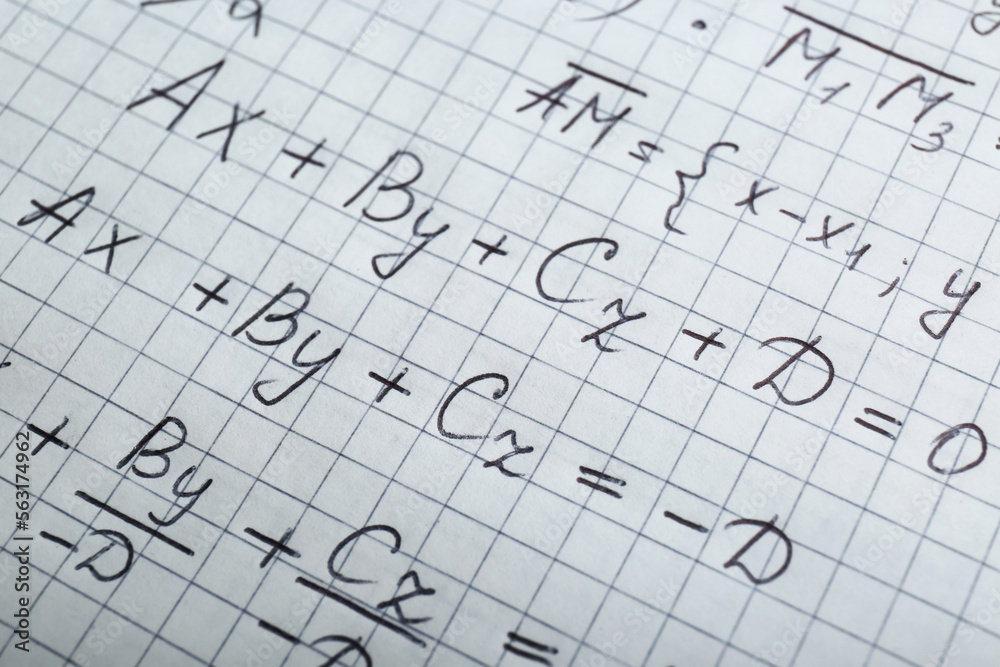 M₁ M₃
AM = { x - x₁ ; y
Ax + By + Cz + D = 0
Ax + By + Cz = -D
+ By/-D + Cz/-D =
Adobe Stock | #563174962